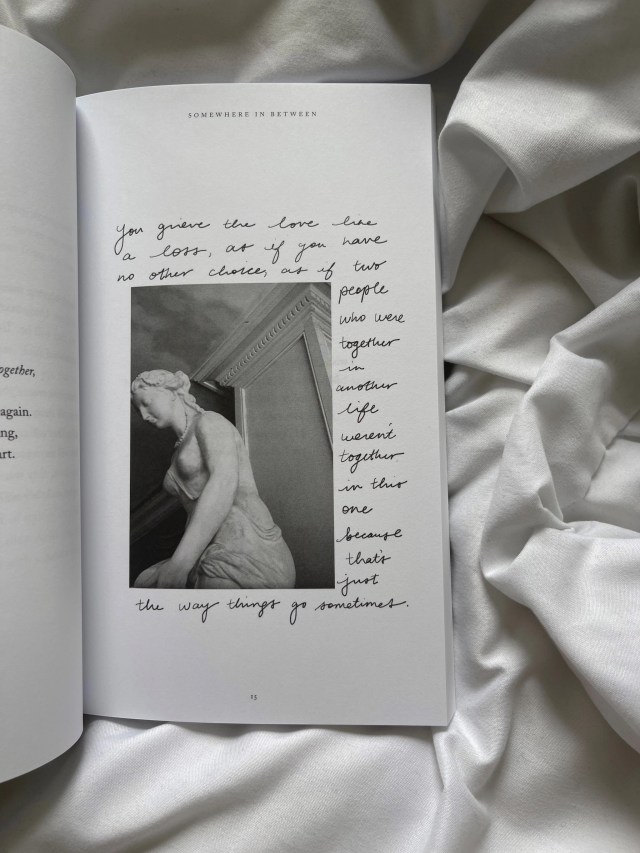 SOMEWHERE IN BETWEEN
you grieve the love like
a loss, as if you have
no other choice, as if two
people
who were
together
in
another
life
weren't
together
in this
one
because
that's
just
the way things go sometimes.
15
ogether,
again.
ng,
art.